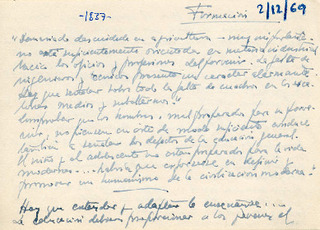 -1827-
Formación
2/12/69
"Demasiado descuidada en agricultura - muy importante -
no está suficientemente orientada en materia industrial
hacia los oficios y profesiones del porvenir. La falta de
ingenieros, y cuadros presenta un carácter alarmante.
Hay que señalar sobre todo la falta de cuadros en los
medios y subalternos."
"Comprobar que los hombres, mal preparados para el porve-
nir, no piensan en este de modo suficiente conduce
también a señalar los defectos de la educación general.
El niño y el adolescente no están preparados para la vida
moderna... habría que esforzarse en definir y
promover un humanismo de la civilización moderna."
Hay que extender y adaptar la enseñanza...
La educación debiera proporcionar a los jóvenes el